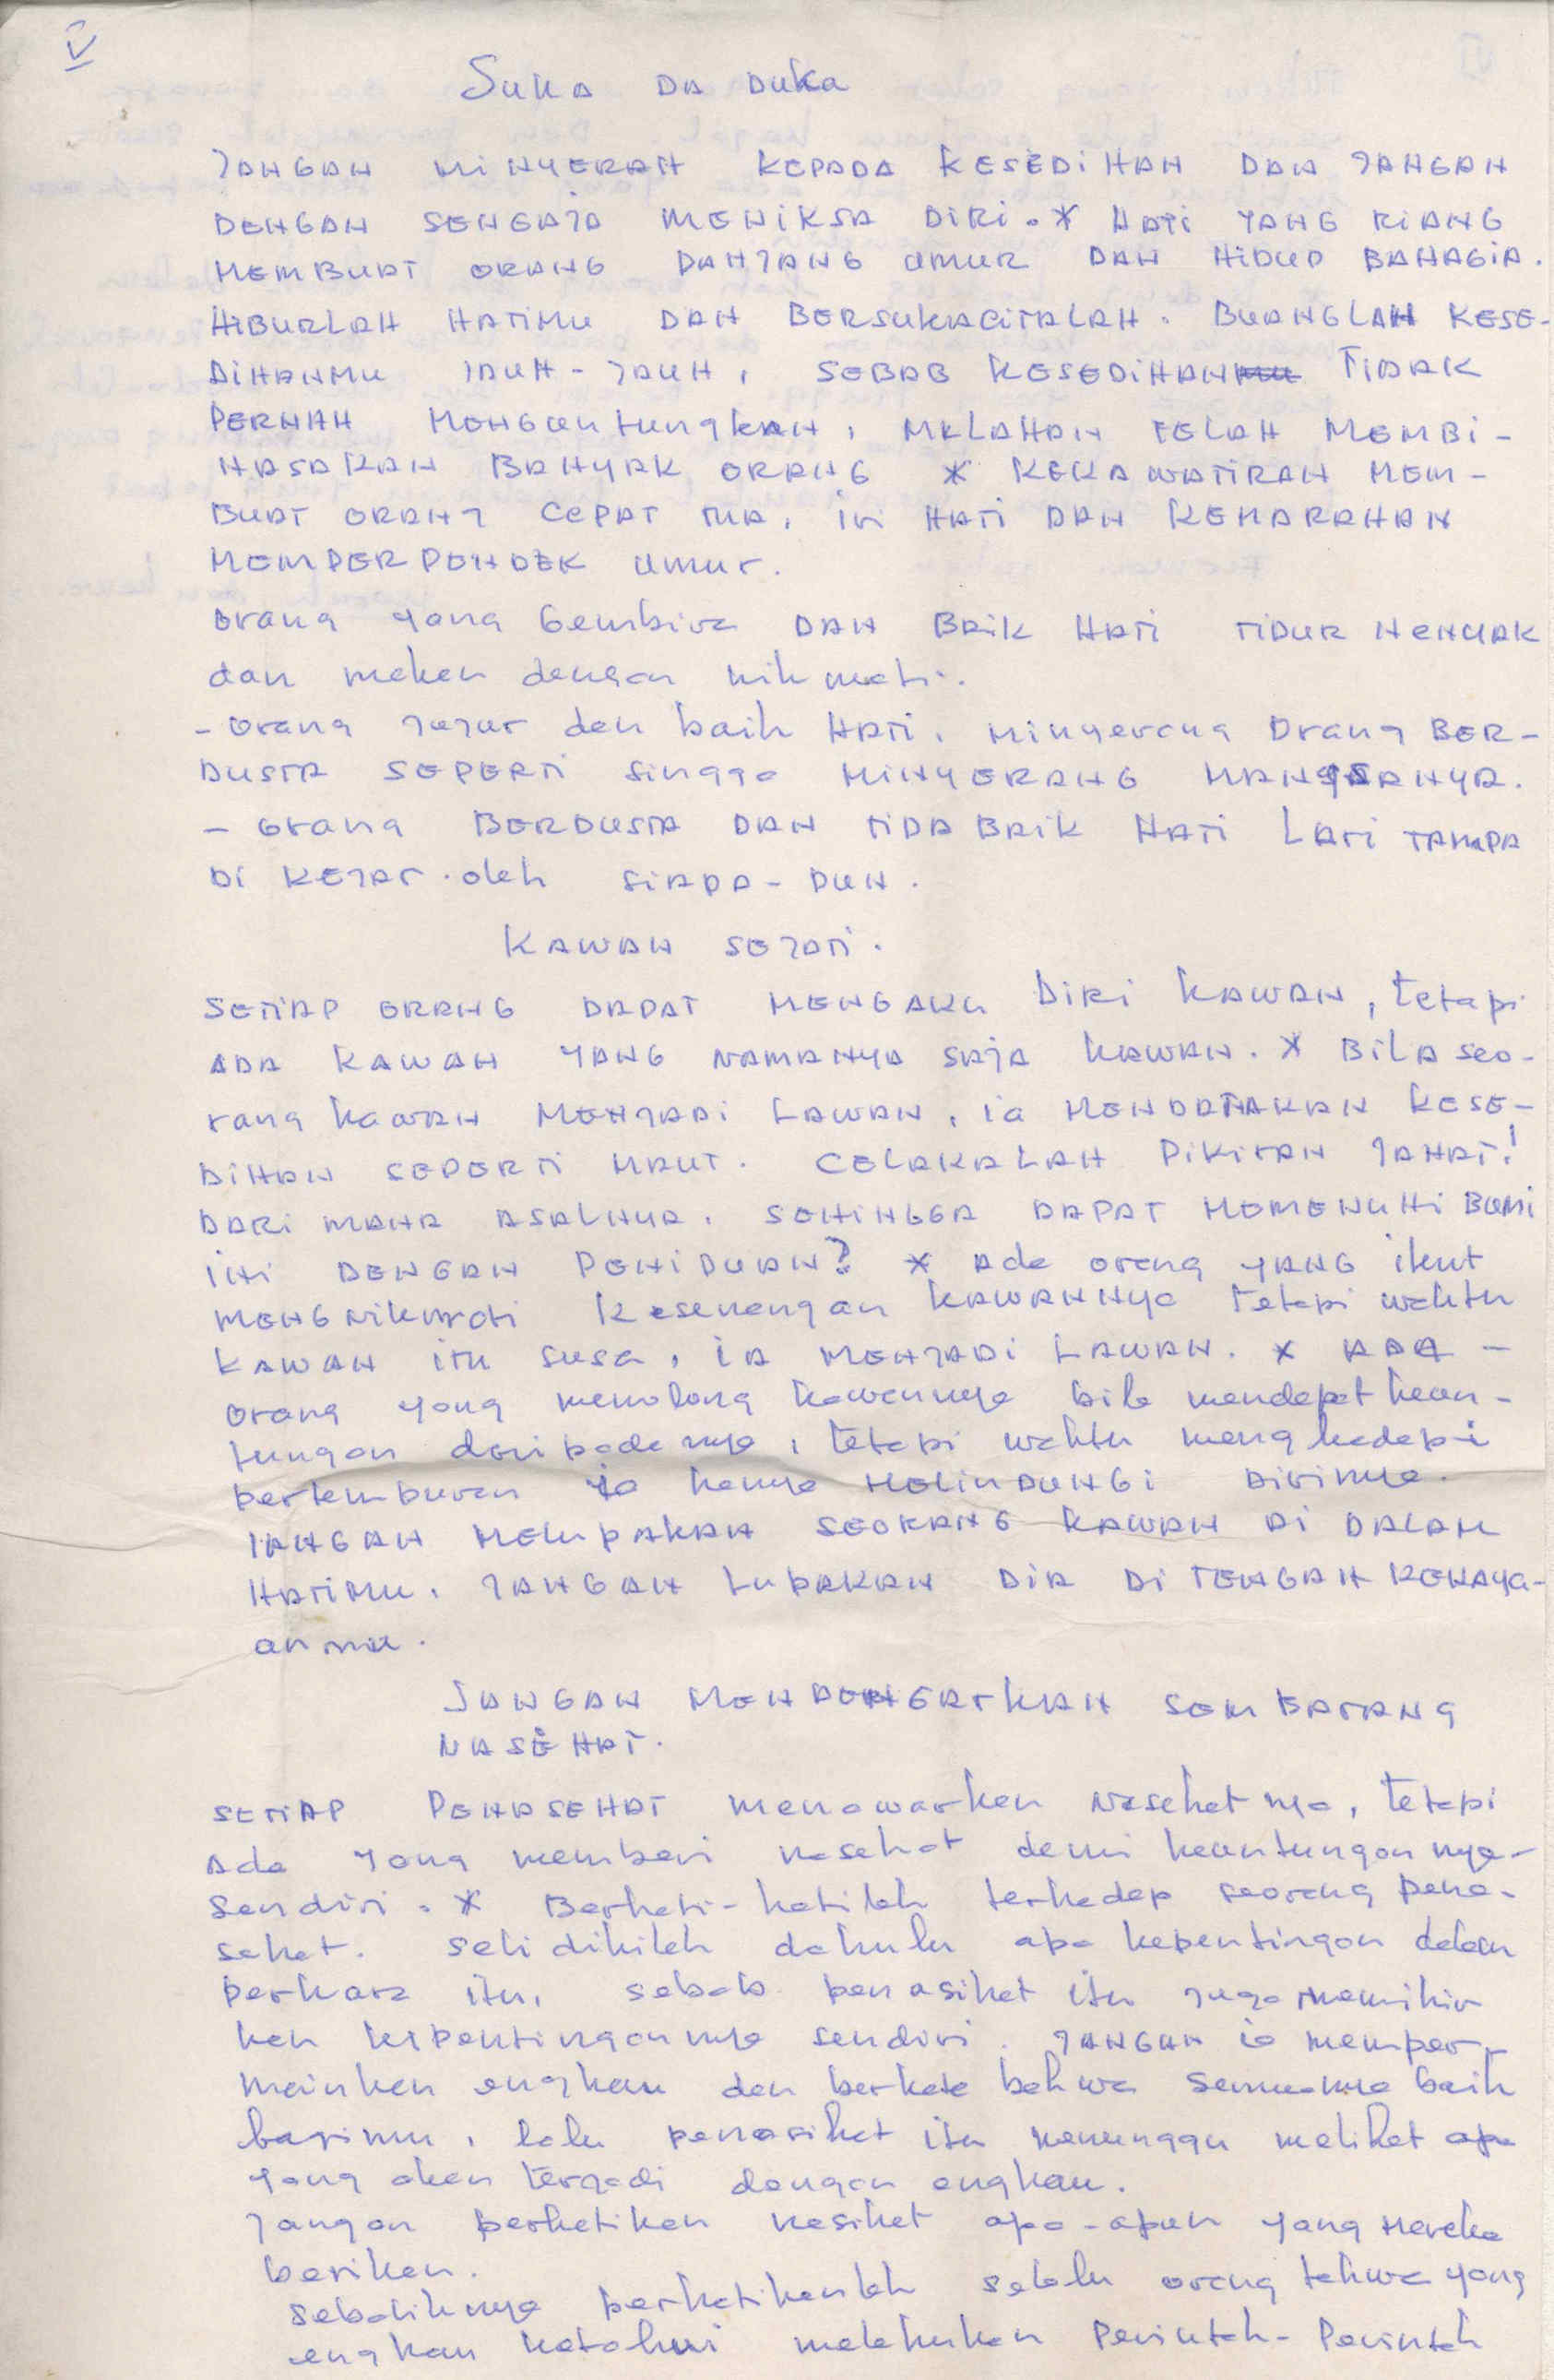 V
Suka DA Duka
JANGAN MiNYERAH KEPADA KESEDiHAN DAN JANGAN
DENGAN SENGAJA MENiKSA DiRi. * HATi YANG RiANG
MEMBUAT ORANG PANJANG UMUR DAN HiDUP BAHAGiA.
HiBURLAH HATiMU DAN BERSUKACiTALAH. BUANGLAH KESE-
DiHANMU JAUH-JAUH, SEBAB KESEDiHAN TiDAK
PERNAH MENGuntungkAN, MALAHAN TELAH MEMBi-
NASAKAN BANYAK ORANG * KEKAWATiRAN MEM-
BUAT ORANG CEPAT TUA, iri HATi DAN KEMARAHAN
MEMPERPENDEK Umur.
Orang yang Gembira DAN BAiK HATi TiDUR NENYAK
dan maken dengan nikmati.
- Orang jujur dan baik HATi, Minyerang Orang BER-
DUSTA SEPERTi Singga MiNYERANG MANGSANYA.
- Orang BERDUSTA DAN TiDA BAiK HATi LAri TAMPA
Di KEJAr. oleh SiAPA-PUN.
KAWAN SEJATi.
SETiAP ORANG DAPAT MENGAKU DiRi KAWAN, tetapi
ADA KAWAN YANG NAMANYA SAJA KAWAN. * BiLA seo-
rang kawAN MENJADi LAWAN, ia MENDATAKAN KESE-
DiHAN SEPERTi MAUT. CELAKALAH PiKirAN JAHAT!
DARi MANA ASALNYA, SEHiNGGA DAPAT MEMENUHi BUMi
iNi DENGAN PENiPUAN? * Ada orang YANG ikut
MENGNikmati Kesenengan KAWANNya tetapi waktu
KAWAN itu susa, iA MENJADi LAWAN. * ADA -
Orang yang menolong kawannya bila mendapat keun-
tungan daripadanya, tetapi waktu menghadapi
pertempuran ia hanya MELiNDUNGi Dirinya.
JANGAN MELUPAKAN SEORANG KAWAN Di DALAM
HATiMU, JANGAN LUPAKAN DiA Di TENGAH KEKAYa-
anmu.
JANGAN MENDENGArkAN SEMBArANG
NASEHAT.
SETiAP PENASEHAT menawarken Nasehatnya, tetapi
Ada yang memberi nasehat demi keuntungannya-
Sendiri. * Berhati-hatilah terhadap seorang pena-
sehat. Selidikilah dahulu apa kepentingan dalam
perkara itu, sebab penasihat itu juga memikir
ken kepentingannya sendiri. JANGAN ia memper-
mainken engkau dan berkata bahwa semuanya baik
bagimu, lalu penasihat itu menunggu melihat apa
yang aken terjadi dengan engkau.
Jangan perhatiken nasihat apa-apun yang mereka
beriken.
Sebaliknya perhatikanlah selalu orang takwa yang
engkau ketahui melakukan Perintah-Perintah